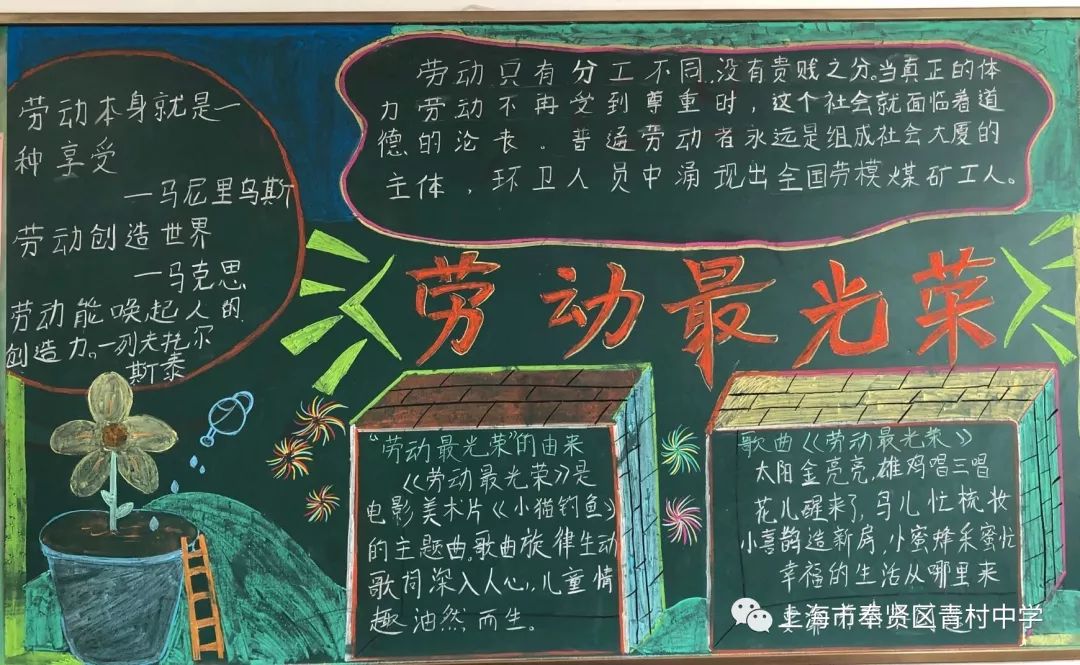 劳动本身就是一
种享受
—马尼里乌斯
劳动创造世界
—马克思
劳动能唤起人的
创造力。—列夫托尔
斯泰
劳动只有分工不同,没有贵贱之分。当真正的体
力劳动不再受到尊重时，这个社会就面临着道
德的沦丧。普通劳动者永远是组成社会大厦的
主体，环卫人员中涌现出全国劳模煤矿工人。
劳动最光荣
“劳动最光荣”的由来
《劳动最光荣》是
电影美术片《小猫钓鱼》
的主题曲。歌曲旋律生动
歌词深入人心,儿童情
趣油然而生。
歌曲《劳动最光荣》
太阳金亮亮,雄鸡唱三唱
花儿醒来了,鸟儿忙梳妆
小喜鹊造新房,小蜜蜂采蜜忙
幸福的生活从哪里来
要靠
上海市奉贤区青村中学